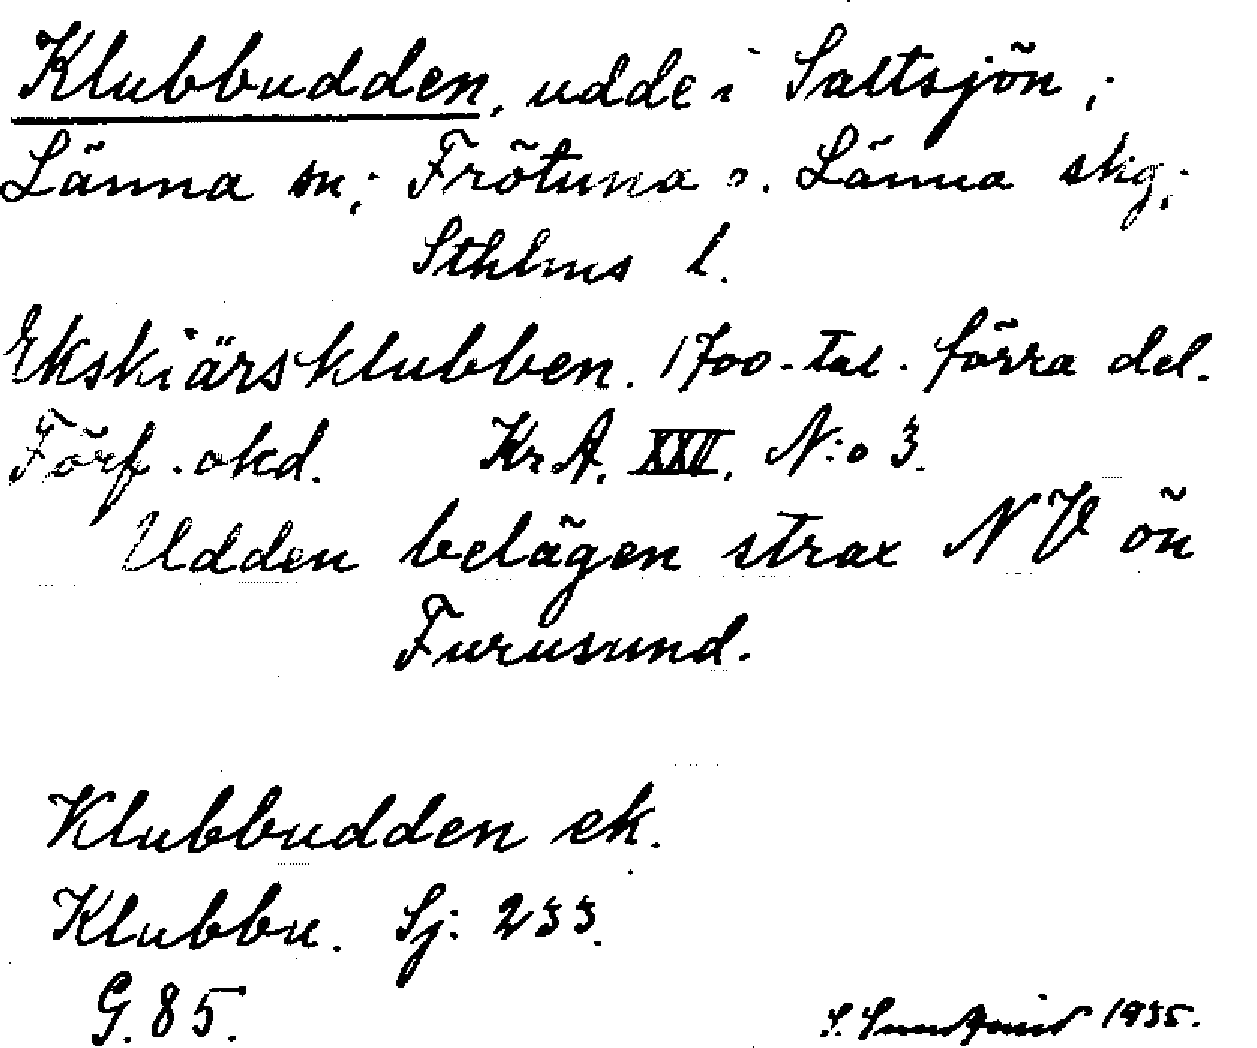 Klubbudden, udde i Saltsjön;
Länna sn; Frötuna o. Länna skg;
Sthlms l.
Ekskiärsklubben. 1700-tal. förra del.
Förf. okd. Kr A. XXII. N:o 3.
Udden belägen strax NV ön
Furusund.
Klubbudden ek.
Klubbu. Sj: 233.
G. 85.
S. 1935.